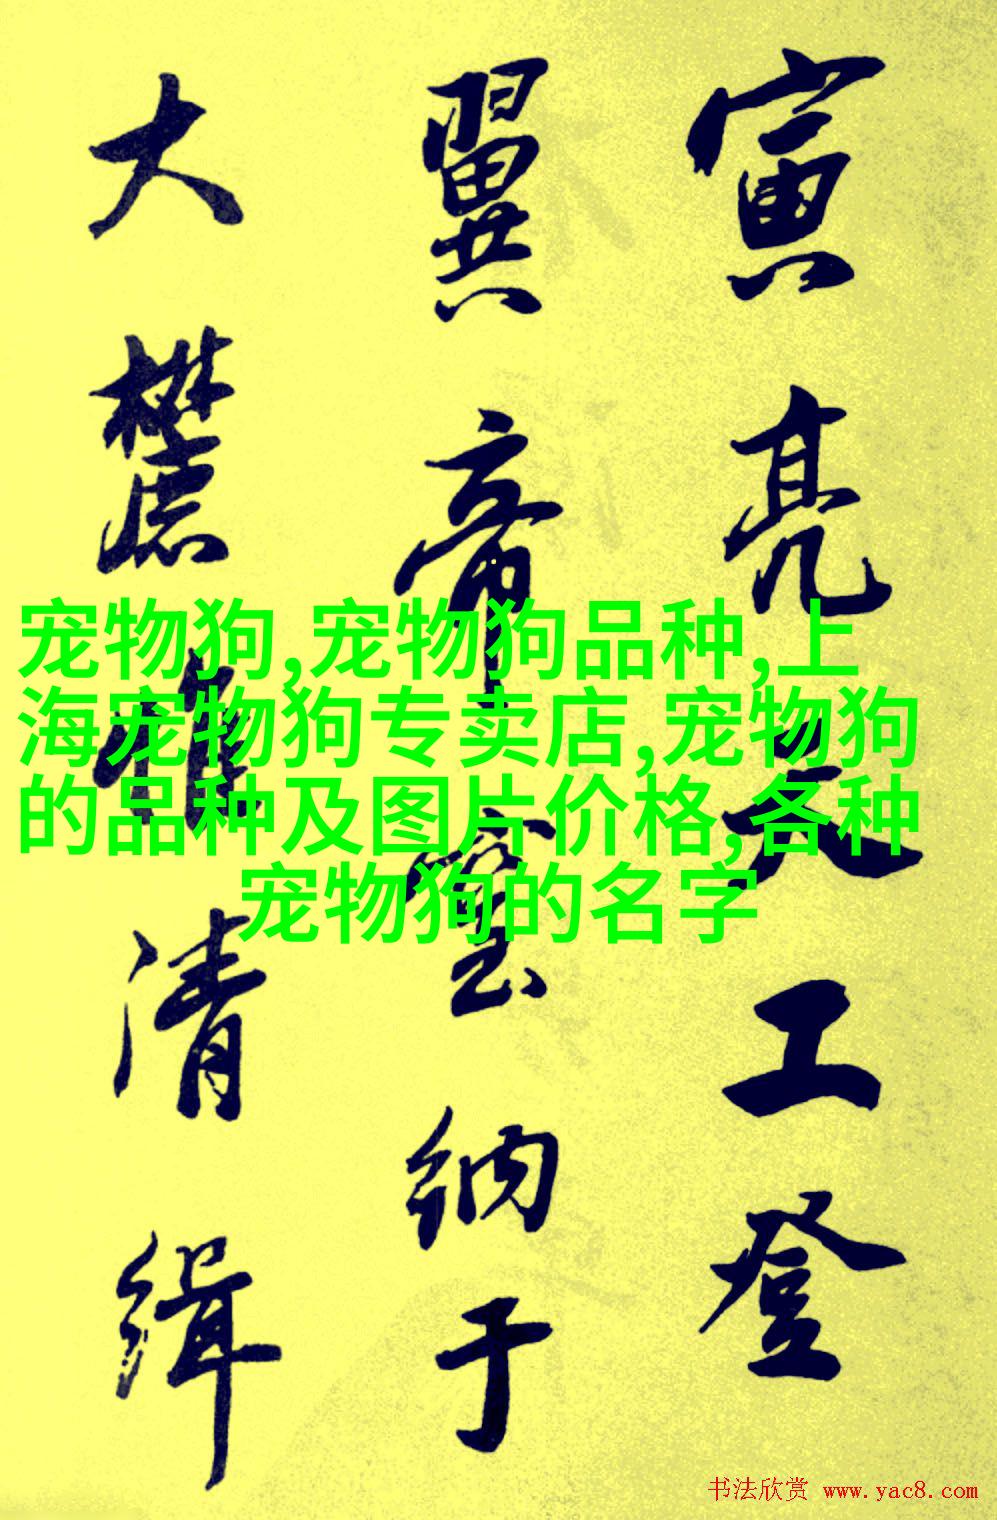 寅亮天工登
翼帝室納于
大麓惟清緝
宠物狗,宠物狗品种,上
海宠物狗专卖店,宠物狗
的品种及图片价格,各种
宠物狗的名字
书法欣赏 www.yac8.com